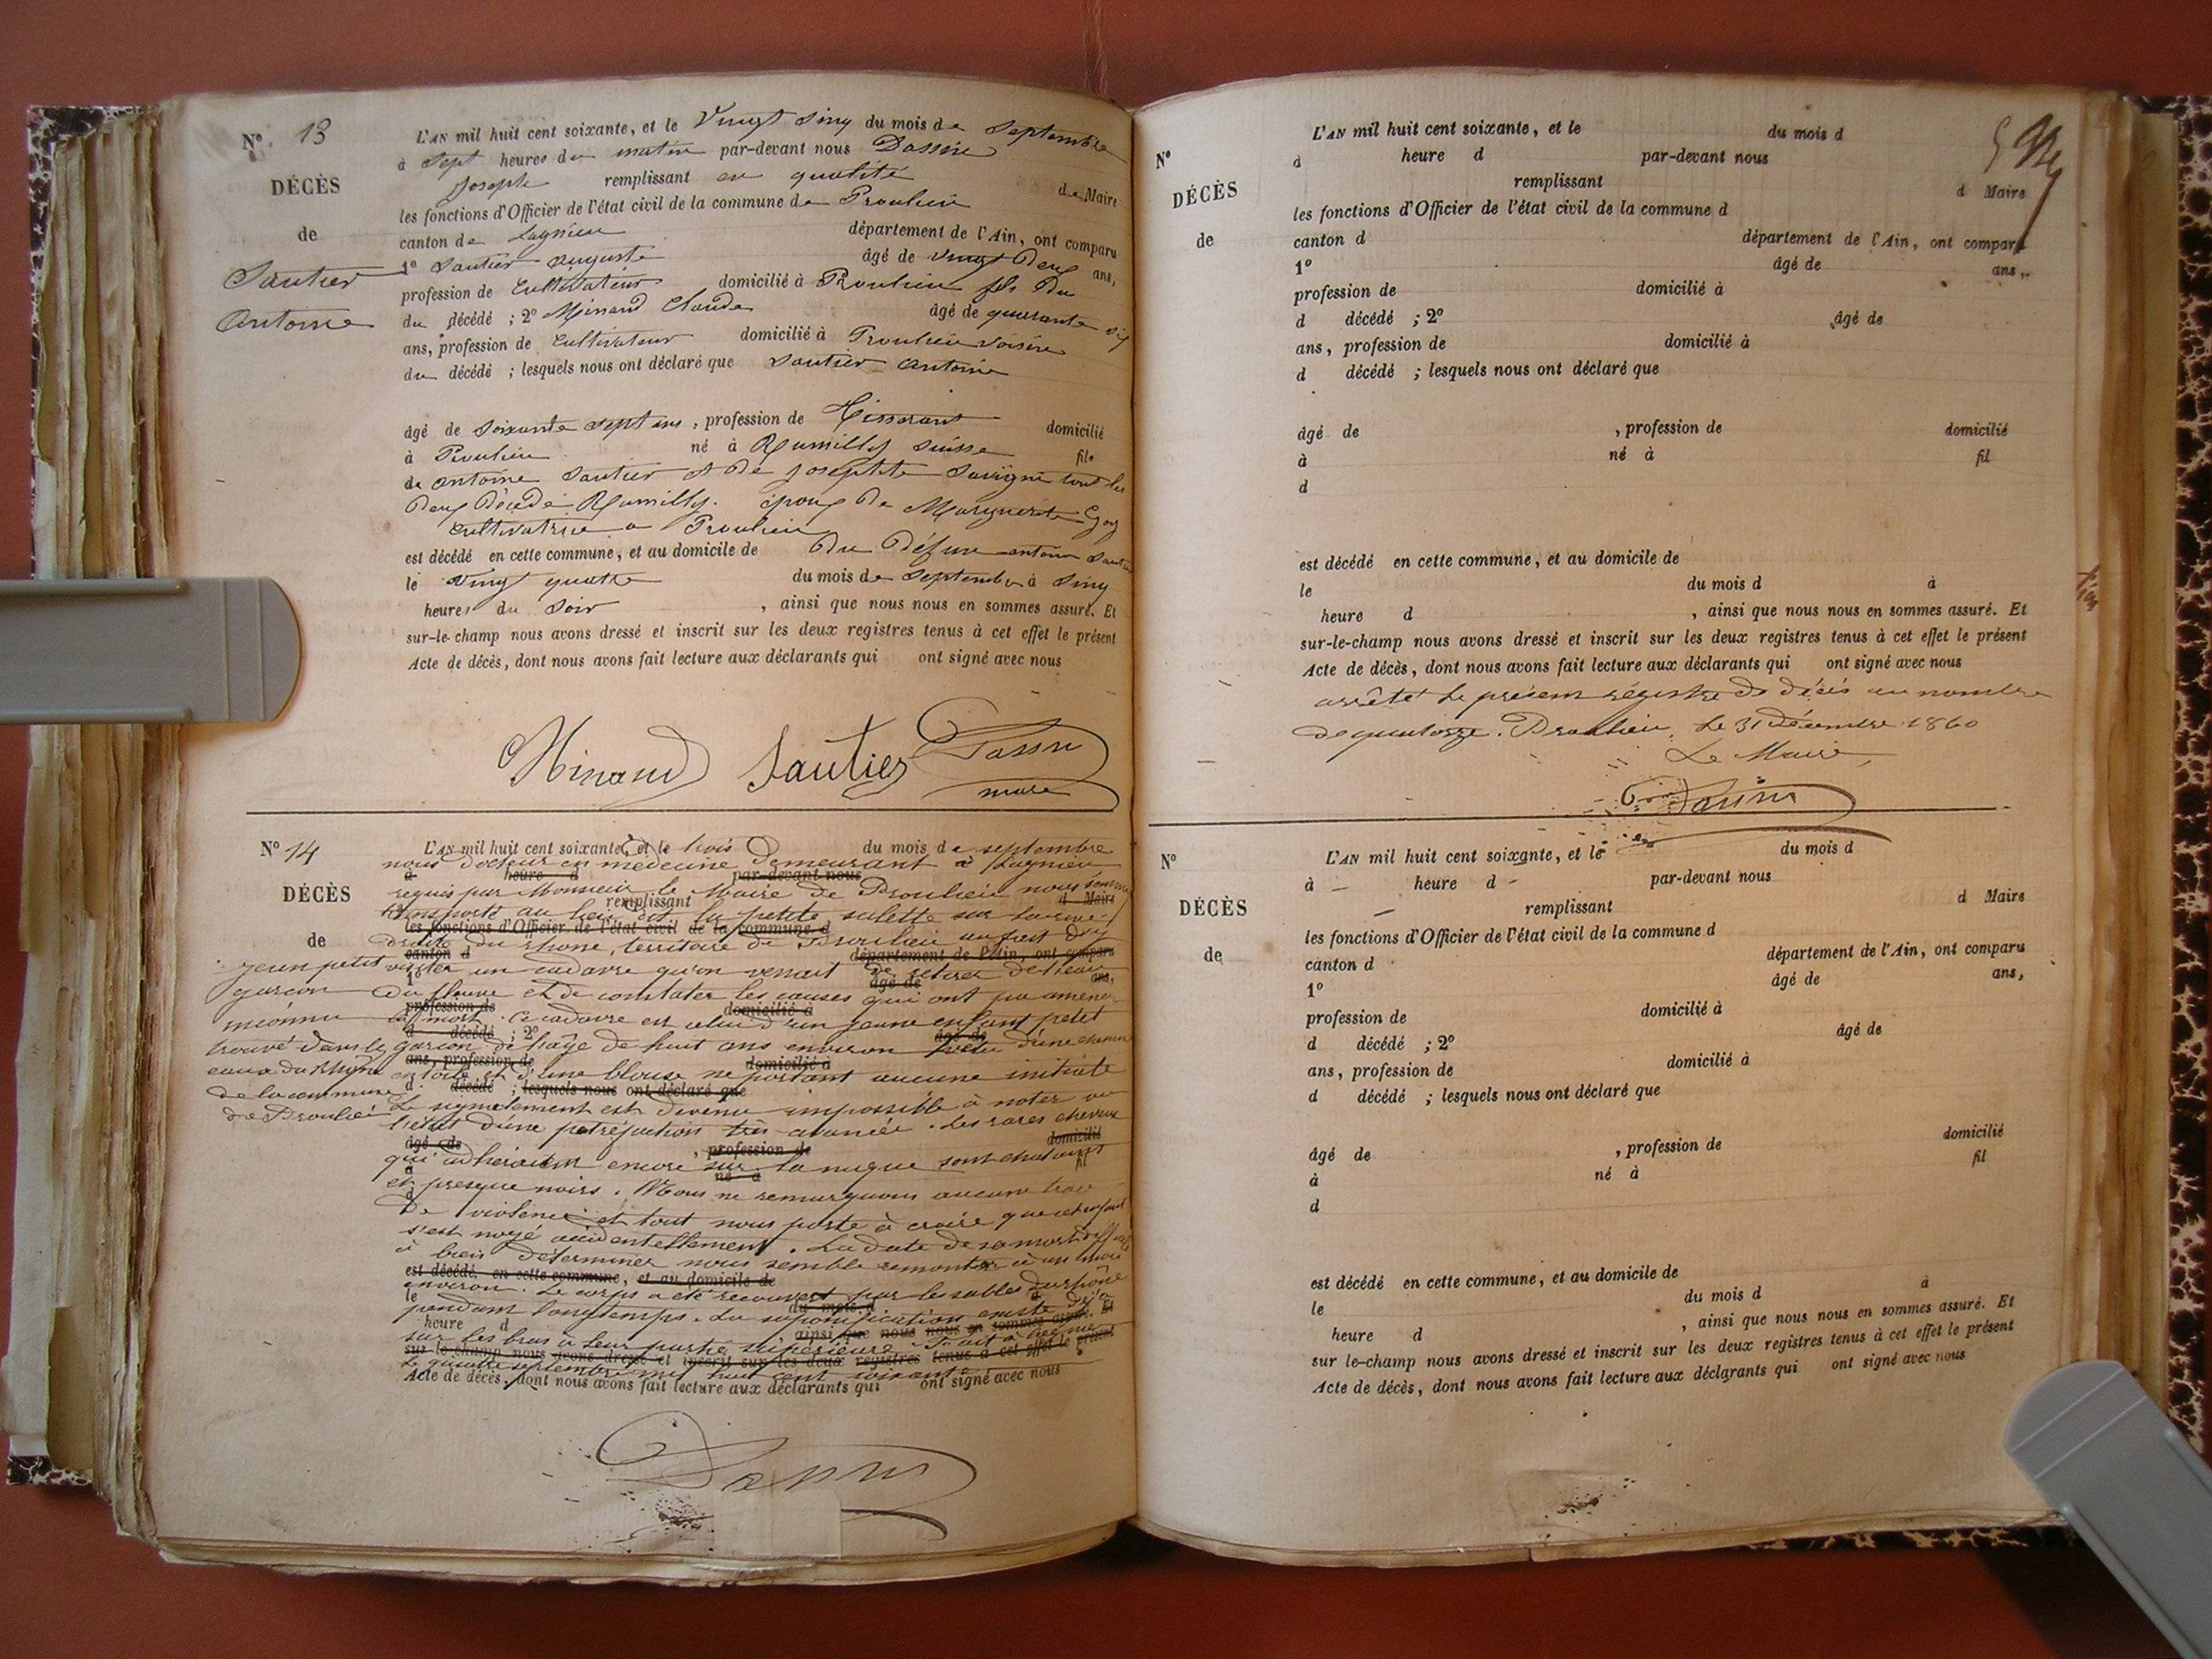 N° 13
DÉCÈS
de
Sautier
Antoine
L'AN mil huit cent soixante, et le Vingt Sinq du mois de Septembre
à Sept heures du matin par-devant nous Dassin
Joseph remplissant en qualité de Maire
les fonctions d'Officier de l'état civil de la commune de Proulieu
canton de Lagnieu département de l'Ain, ont comparu
1° Sautier auguste âgé de vingt Deux ans,
profession de Cultivateur domicilié à Proulieu fils Du
du décédé ; 2° Minand Claude âgé de quarante six
ans, profession de Cultivateur domicilié à Proulieu voisin
du décédé ; lesquels nous ont déclaré que Sautier antoine
âgé de Soixante Sept ans, profession de Tisserant domicilié
à Proulieu né à Rumilly Suisse fils
de antoine Sautier et De Josephte Savigni tout les
Deux Décédé Rumilly. époux De Marguerite Goy
Cultivatrice a Proulieu
est décédé en cette commune, et au domicile de Du Défun antoine Sautier
le Vingt quatre du mois de Septembre à Sinq
heures du Soir , ainsi que nous nous en sommes assuré. Et
sur-le-champ nous avons dressé et inscrit sur les deux registres tenus à cet effet le présent
Acte de décès, dont nous avons fait lecture aux déclarants qui ont signé avec nous
Minand Sautier Dassin
maire
N° 14
DÉCÈS
de
jeun petit
garçon
inconnu
trouvé dans les
eaux du Rhône
de la commune
de Proulieu
L'AN mil huit cent soixante, et le trois du mois de septembre
nous docteur en medecine demeurant à Lagnieu
à heure d par-devant nous
requis par Monsieur le Maire de Proulieu nous somme
remplissant d Maire
transporté au lieu dit la petite sur la rive
les fonctions d'Officier de l'état civil de la commune d
droite du rhone, territoire de Proulieu
canton d département de l'Ain, ont comparu
visiter un cadavre qu'on venait de retirer de l'eau
1° âgé de ans,
du fleuve et de constater les causes qui ont pu amener
profession de domicilié à
la mort. Ce cadavre est celui d'un jeune enfant petit
d décédé ; 2° âgé de
garçon de l'age de huit ans environ vetu d'une chemise
ans, profession de domicilié à
en toile et d'une blouse ne portant aucune initiale
d décédé ; lesquels nous ont déclaré que
Le signalement est devenu impossible à noter vu
l'état d'une putréfaction très-avancée. Les rares cheveux
âgé de , profession de domicilié
qui adhéraient encore sur la nuque sont chatains
à né à fil
et presque noirs. Nous ne remarquons aucune trace
d
De violence et tout nous porte à croire que cet enfant
s'est noyé accidentellement. La date de sa mort difficile
à bien déterminer nous semble remonter à un mois
est décédé en cette commune, et au domicile de
environ. Le corps a été recouvert par les sables du rhône
le du mois d à
pendant longtemps. La saponification existe déja
heure d , ainsi que nous nous en sommes assuré. Et
sur les bras à leur partie supérieure. Fait à
sur-le-champ nous avons dressé et inscrit sur les deux registres tenus à cet effet le présent
Le quatre septembre mil huit cent soixante
Acte de décès, dont nous avons fait lecture aux déclarants qui ont signé avec nous
Dassin
N°
DÉCÈS
de
L'AN mil huit cent soixante, et le du mois d
à heure d par-devant nous
remplissant d Maire
les fonctions d'Officier de l'état civil de la commune d
canton d département de l'Ain, ont comparu
1° âgé de ans,
profession de domicilié à
d décédé ; 2° âgé de
ans, profession de domicilié à
d décédé ; lesquels nous ont déclaré que
âgé de , profession de domicilié
à né à fil
d
est décédé en cette commune, et au domicile de
le du mois d à
heure d , ainsi que nous nous en sommes assuré. Et
sur-le-champ nous avons dressé et inscrit sur les deux registres tenus à cet effet le présent
Acte de décès, dont nous avons fait lecture aux déclarants qui ont signé avec nous
arrêté le présent régistre de décès au nombre
de quatorze. Proulieu, le 31 Décembre 1860
Le Maire,
Dassin
N°
DÉCÈS
de
L'AN mil huit cent soixante, et le du mois d
à heure d par-devant nous
remplissant d Maire
les fonctions d'Officier de l'état civil de la commune d
canton d département de l'Ain, ont comparu
1° âgé de ans,
profession de domicilié à
d décédé ; 2° âgé de
ans, profession de domicilié à
d décédé ; lesquels nous ont déclaré que
âgé de , profession de domicilié
à né à fil
d
est décédé en cette commune, et au domicile de
le du mois d à
heure d , ainsi que nous nous en sommes assuré. Et
sur le-champ nous avons dressé et inscrit sur les deux registres tenus à cet effet le présent
Acte de décès, dont nous avons fait lecture aux déclarants qui ont signé avec nous